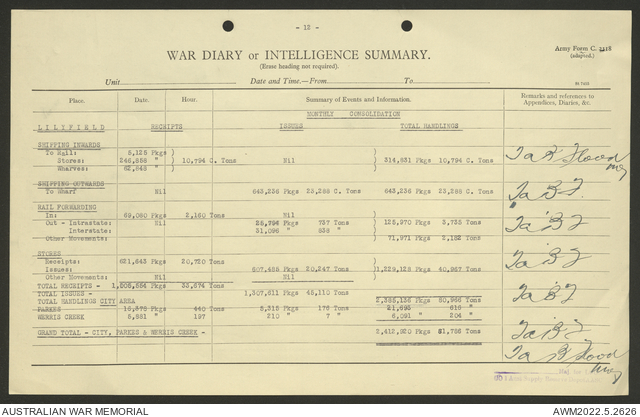 - 12 -
Army Form C. 2118
(adapted.)
WAR DIARY or INTELLIGENCE SUMMARY.
(Erase heading not required).
Unit
Date and Time.—From
To
Place.
Date.
Hour.
Summary of Events and Information.
Remarks and references to
Appendices, Diaries, &c.
MONTHLY CONSOLIDATION
LILYFIELD RECEIPTS ISSUES TOTAL HANDLINGS
SHIPPING INWARDS
To Rail: 5,125 Pkgs )
Stores: 246,858 " ) 10,794 C. Tons Nil ) 314,831 Pkgs 10,794 C. Tons
Wharves: 62,848 " )
SHIPPING OUTWARDS
To Wharf Nil 643,236 Pkgs 23,288 C. Tons 643,236 Pkgs 23,288 C. Tons
RAIL FORWARDING
In: 69,080 Pkgs 2,160 Tons Nil )
Out - Intrastate: Nil 25,794 Pkgs 737 Tons ) 125,970 Pkgs 3,735 Tons
Interstate: 31,096 " 838 " )
Other Movements: 71,971 Pkgs 2,182 Tons
STORES
Receipts: 621,643 Pkgs 20,720 Tons )
Issues: 607,485 Pkgs 20,247 Tons )1,229,128 Pkgs 40,967 Tons
Other Movements: Nil Nil )
TOTAL RECEIPTS - 1,005,554 Pkgs 33,674 Tons
TOTAL ISSUES - 1,307,611 Pkgs 45,110 Tons
TOTAL HANDLINGS CITY AREA 2,385,136 Pkgs 80,966 Tons
PARKES 16,378 Pkgs 440 Tons 5,315 Pkgs 176 Tons 21,693 " 616 "
WERRIS CREEK 5,881 " 197 210 " 7 " 6,091 " 204 "
GRAND TOTAL - CITY, PARKES & WERRIS CREEK - 2,412,920 Pkgs 81,786 Tons
AUSTRALIAN WAR MEMORIAL
AWM2022.5.2626